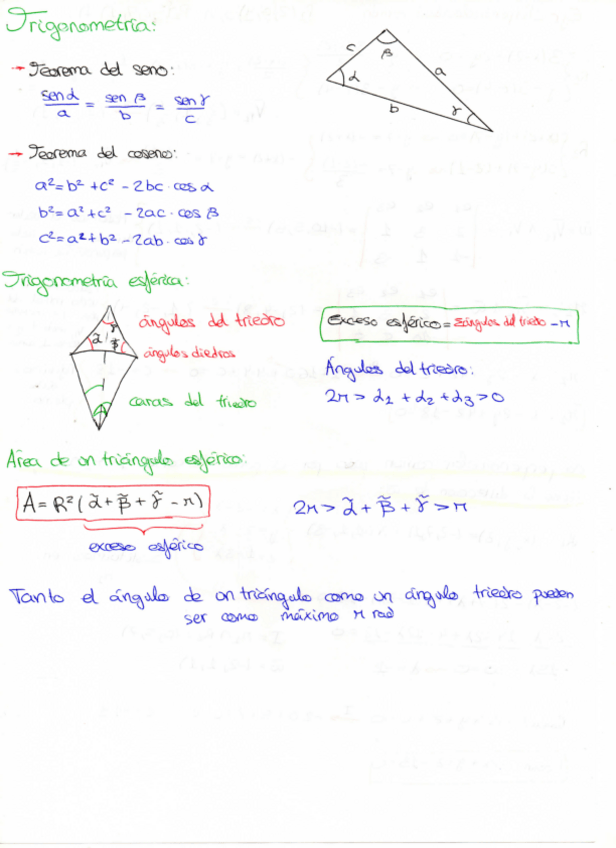 Trigonometría:
→ Teorema del seno:
sen α / a = sen β / b = sen γ / c
c
β
a
α
b
γ
→ Teorema del coseno:
a² = b² + c² - 2bc · cos α
b² = a² + c² - 2ac · cos β
c² = a² + b² - 2ab · cos γ
Trigonometría esférica:
ángulos del triedro
ángulos diedros
caras del triedro
Exceso esférico = Σángulos del triedro - π
Ángulos del triedro:
2π > α₁ + α₂ + α₃ > 0
Área de un triángulo esférico:
A = R² (α̃ + β̃ + γ̃ - π)
exceso esférico
2π > α̃ + β̃ + γ̃ > π
Tanto el ángulo de un triángulo como un ángulo triedro pueden
ser como máximo π rad